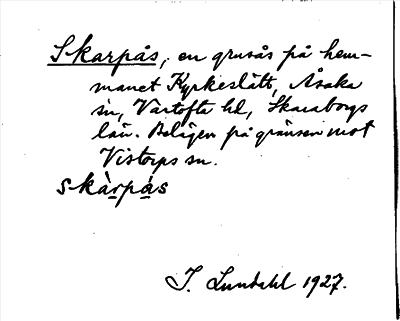 Skarpås, en grusås på hem-
manet Kyrkeslätt, Åsaka
sn, Vartofta hd, Skaraborgs
län. Belägen på gränsen mot
Vistorps sn.
skàrpás
I. Lundahl 1927.